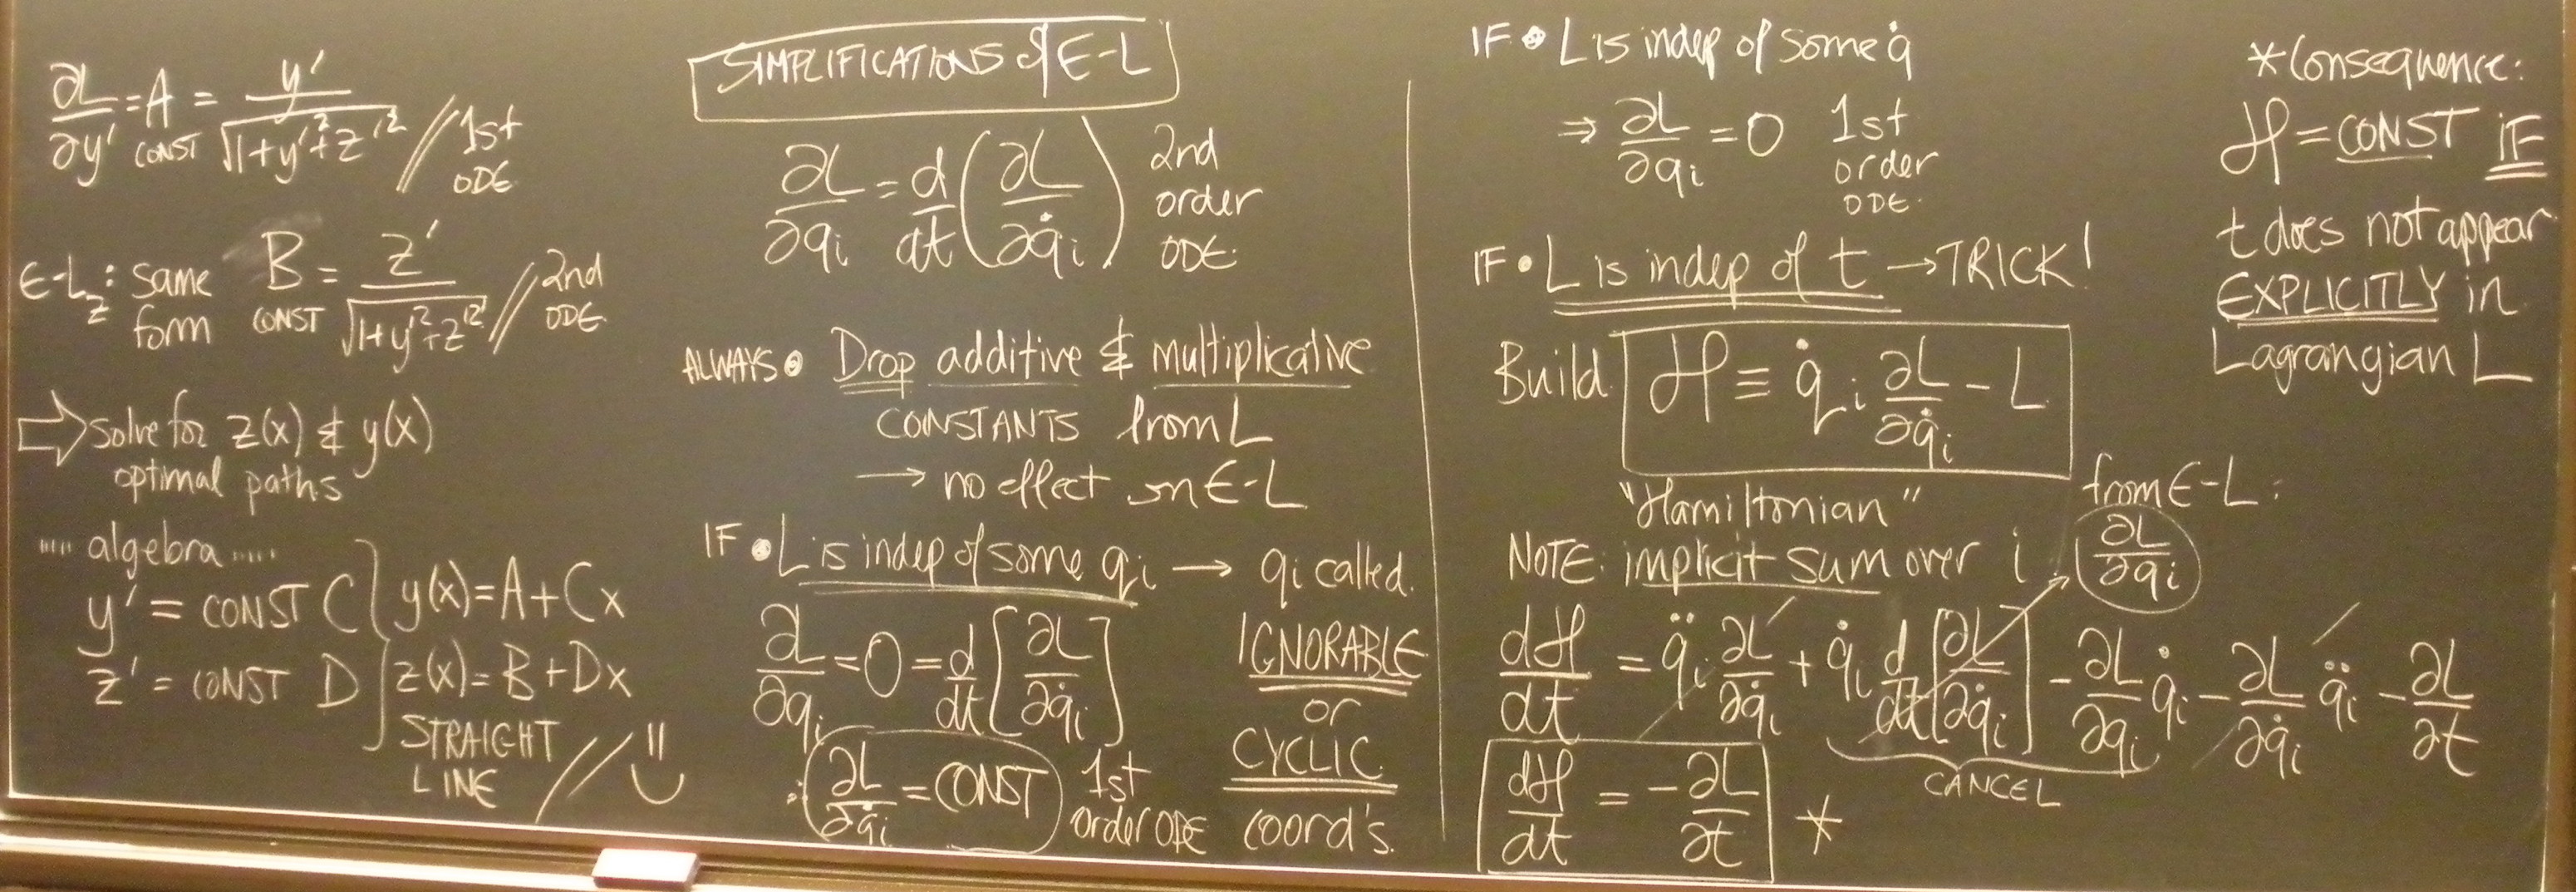 ∂L/∂y' = A = y'/√(1+y'²+z'²) // 1st
CONST ODE
E-L_z: same form B = z'/√(1+y'²+z'²) // 2nd
CONST ODE
⇒ solve for z(x) & y(x)
optimal paths
.... algebra ....
y' = CONST C } y(x) = A + Cx
z' = CONST D } z(x) = B + Dx
STRAIGHT
LINE //
SIMPLIFICATIONS of E-L
∂L/∂q_i = d/dt (∂L/∂q̇_i) 2nd
order
ODE.
ALWAYS • Drop additive & multiplicative
CONSTANTS from L
→ no effect on E-L
IF • L is indep of some q_i → q_i called
IGNORABLE
or
CYCLIC
coord's.
∂/∂q_i = 0 = d/dt [∂L/∂q̇_i]
∴ ∂L/∂q̇_i = CONST 1st
order ODE
IF • L is indep of some q̇
⇒ ∂L/∂q_i = 0 1st
order
ODE.
IF • L is indep of t → TRICK!
Build ℋ ≡ q̇_i ∂L/∂q̇_i - L
"Hamiltonian"
NOTE: implicit sum over i
from E-L:
∂L/∂q_i
dℋ/dt = q̈_i ∂L/∂q̇_i + q̇_i d/dt [∂L/∂q̇_i] - ∂L/∂q_i q̇_i - ∂L/∂q̇_i q̈_i - ∂L/∂t
CANCEL
dℋ/dt = -∂L/∂t *
* Consequence:
ℋ = CONST IF
t does not appear
EXPLICITLY in
Lagrangian L